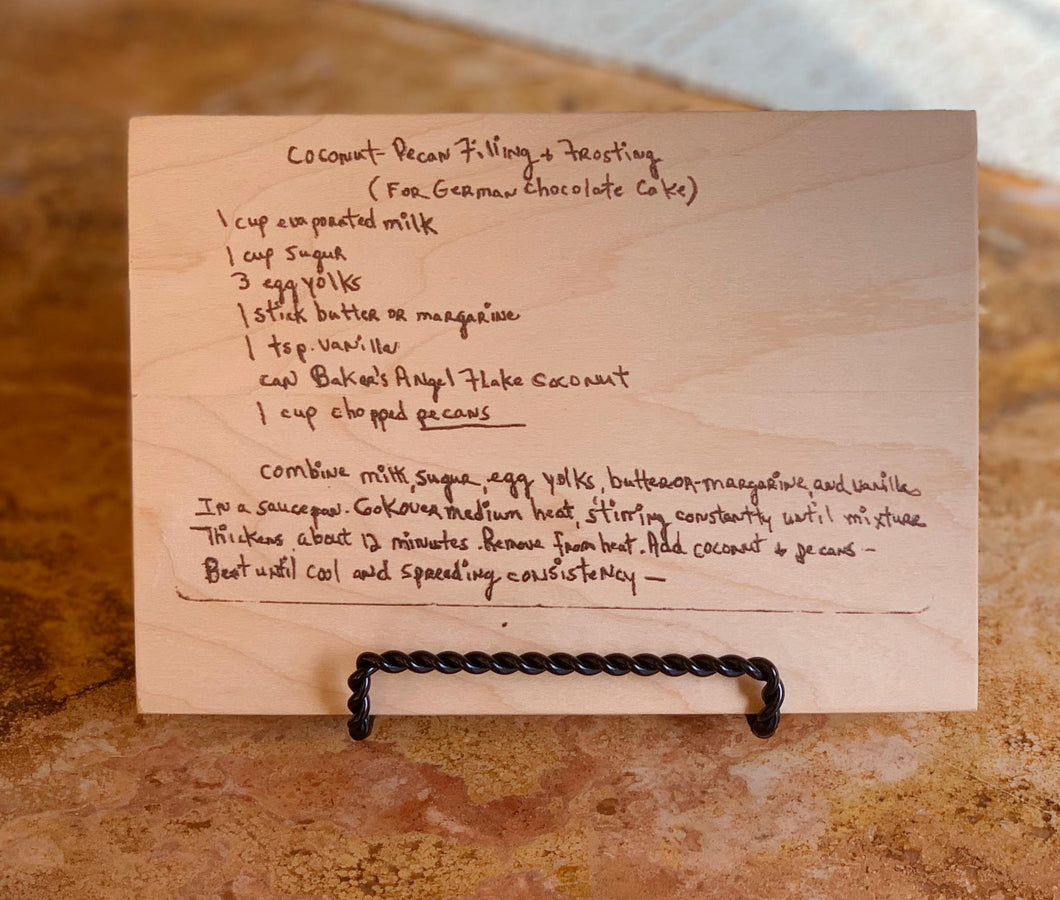 Coconut-Pecan Filling + Frosting
(For German Chocolate Cake)
1 cup evaporated milk
1 cup sugar
3 egg yolks
1 stick butter or margarine
1 tsp. vanilla
can Baker's Angel Flake coconut
1 cup chopped pecans
Combine milk, sugar, egg yolks, butter or margarine, and vanilla
In a saucepan. Cook over medium heat, stirring constantly until mixture
Thickens, about 12 minutes. Remove from heat. Add coconut + pecans -
Beat until cool and spreading consistency -